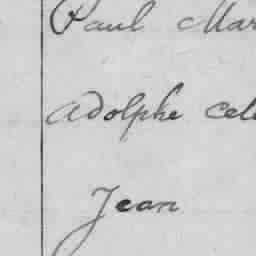 Paul Mar
Adolphe Cel
Jean